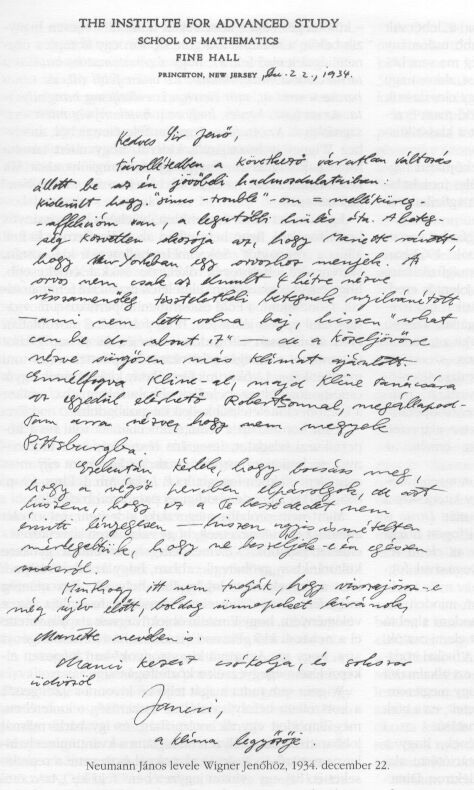 THE INSTITUTE FOR ADVANCED STUDY
SCHOOL OF MATHEMATICS
FINE HALL
PRINCETON, NEW JERSEY, Dec. 22., 1934.
Kedves Jenő,
távollétedben a következő váratlan változás
állott be az én jövőbeli hadmozdulataimban:
kiderült hogy "sinus-trouble"-om = melléküreg-
affekcióm van, a legutóbbi hűlés óta. A beteg-
ség közvetlen okozója az, hogy Mariette
hogy New Yorkban, egy orvoshoz menjek. A
orvos nem csak az elmult 4 hétre nézve
visszamenőleg tiszteletbeli betegnek nyilvánított
— ami nem lett volna baj, hiszen "what
can he do about it" — de a közeljövőre
nézve sürgősen más klimát ajánlott.
Ennélfogva Kline-al, majd Kline tanácsára
az egyedül elérhető Robertsonnal, megállapod-
tam arra nézve, hogy nem megyek
Pittsburgba.
Ezekután kérlek, hogy bocsáss meg,
hogy a végső percben elpárolgok, de azt
hiszem, hogy ez a Te beszédedet nem
érinti lényegesen — hiszen ugyis ismételten
mérlegeltük, hogy ne beszéljek-e én egészen
másról.
Minthogy itt nem tudják, hogy visszajössz-e
még újév előtt, boldog ünnepeket kívánok,
Mariette nevében is.
Manci kezeit csókolja, és sokszor
üdvözöl
Jancsi,
a klima legyőzője
Neumann János levele Wigner Jenőhöz, 1934. december 22.